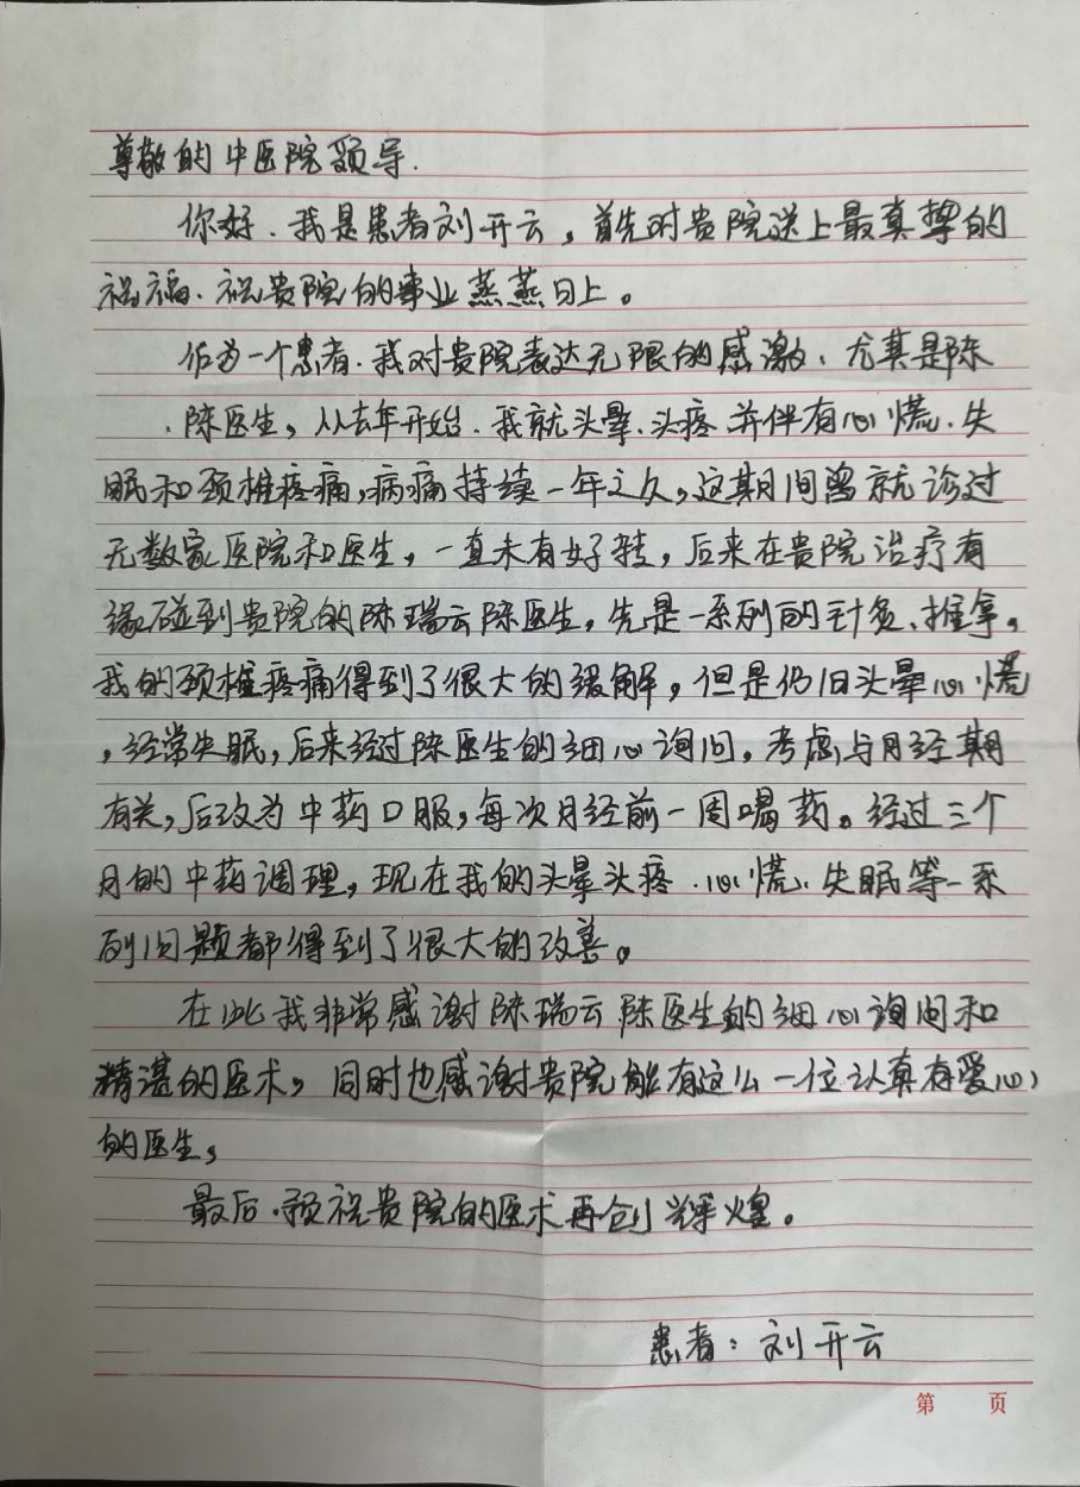 尊敬的中医院领导.
你好.我是患者刘开云,首先对贵院送上最真挚的
祝福.祝贵院的事业蒸蒸日上。
作为一个患者.我对贵院表达无限的感激、尤其是陈
.陈医生,从去年开始.我就头晕、头疼、并伴有心慌、失
眠和颈椎疼痛,病痛持续一年之久,这期间就诊过
无数家医院和医生,一直未有好转,后来在贵院治疗有
缘碰到贵院的陈瑞云陈医生,先是一系列的针灸、推拿,
我的颈椎疼痛得到了很大的缓解,但是仍旧头晕心慌
,经常失眠,后来经过陈医生的细心询问,考虑与月经期
有关,后改为中药口服,每次月经前一周喝药。经过三个
月的中药调理,现在我的头晕头疼.心慌、失眠等一系
列问题都得到了很大的改善。
在此我非常感谢陈瑞云陈医生的细心询问和
精湛的医术,同时也感谢贵院能有这么一位认真有爱心
的医生,
最后.预祝贵院的医术再创辉煌。
患者:刘开云
第 页